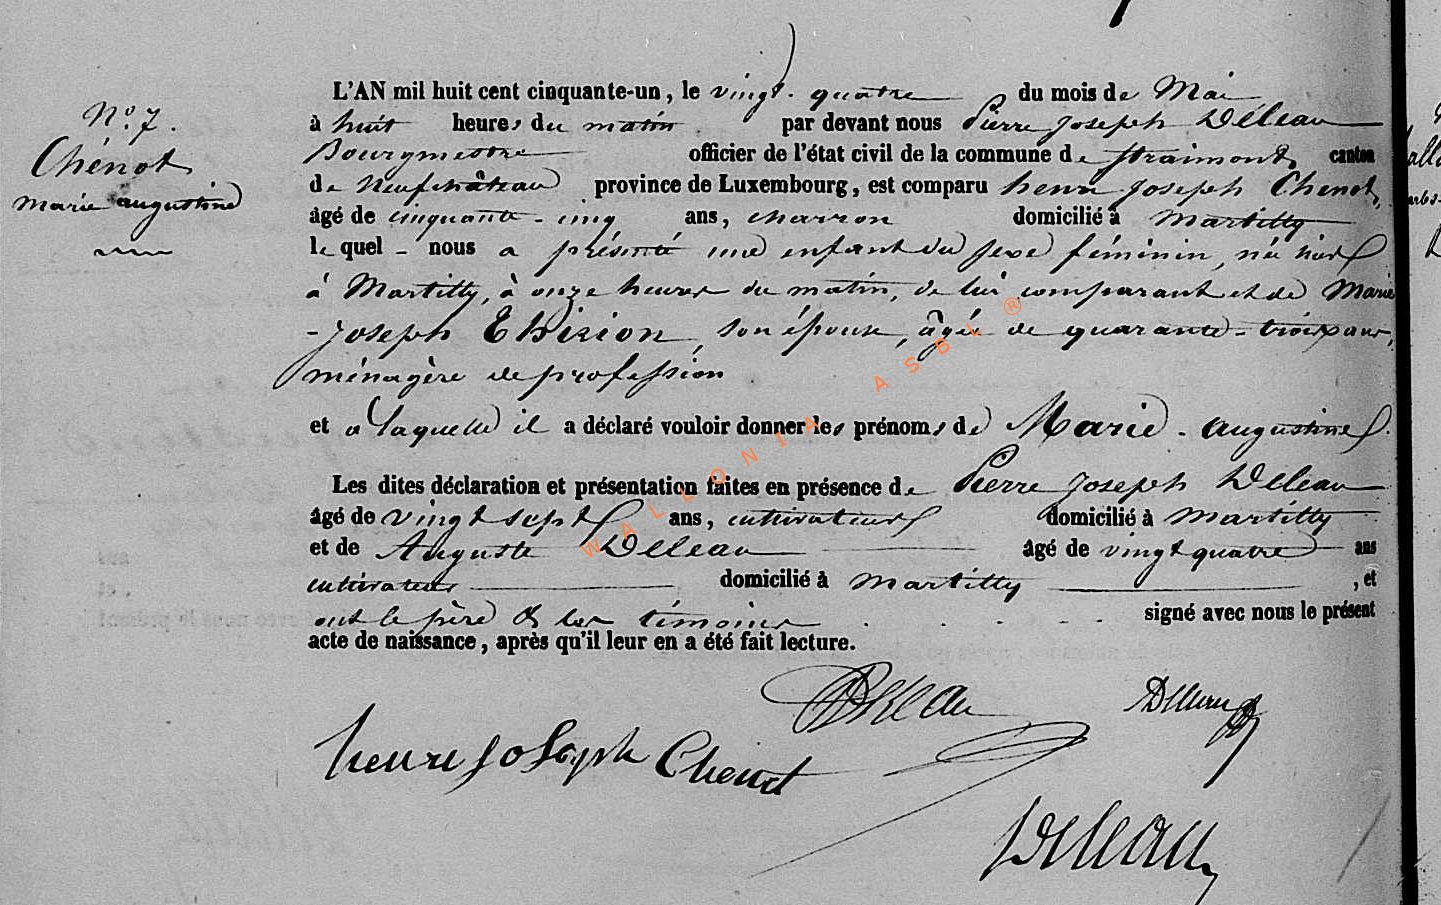 N.o 7.
Chénot
marie augustine
L'AN mil huit cent cinquante-un, le vingt-quatre du mois de Mai
à huit heures du matin par devant nous Pierre Joseph Déleau
Bourgmestre officier de l'état civil de la commune de Straimont, canton
de Neufchâteau province de Luxembourg, est comparu henri Joseph Chenot,
âgé de cinquante-cinq ans, charron domicilié à Martilly
le quel - nous a présenté une enfant du sexe féminin, née hier
à Martilly, à onze heures du matin, de lui comparant et de Marie
-Joseph Thirion, son épouse, âgée de quarante-trois ans,
ménagère de profession
et à laquelle il a déclaré vouloir donner les prénoms de Marie-augustine
Les dites déclaration et présentation faites en présence de Pierre Joseph Déleau
âgé de vingt sept ans, cultivateur domicilié à Martilly
et de Auguste Déleau âgé de vingt quatre ans
cultivateur domicilié à Martilly, et
ont le père & les témoins signé avec nous le présent
acte de naissance, après qu'il leur en a été fait lecture.
Déleau
henri Joseph Chenot
Déleau
WALLONIA ASBL ®